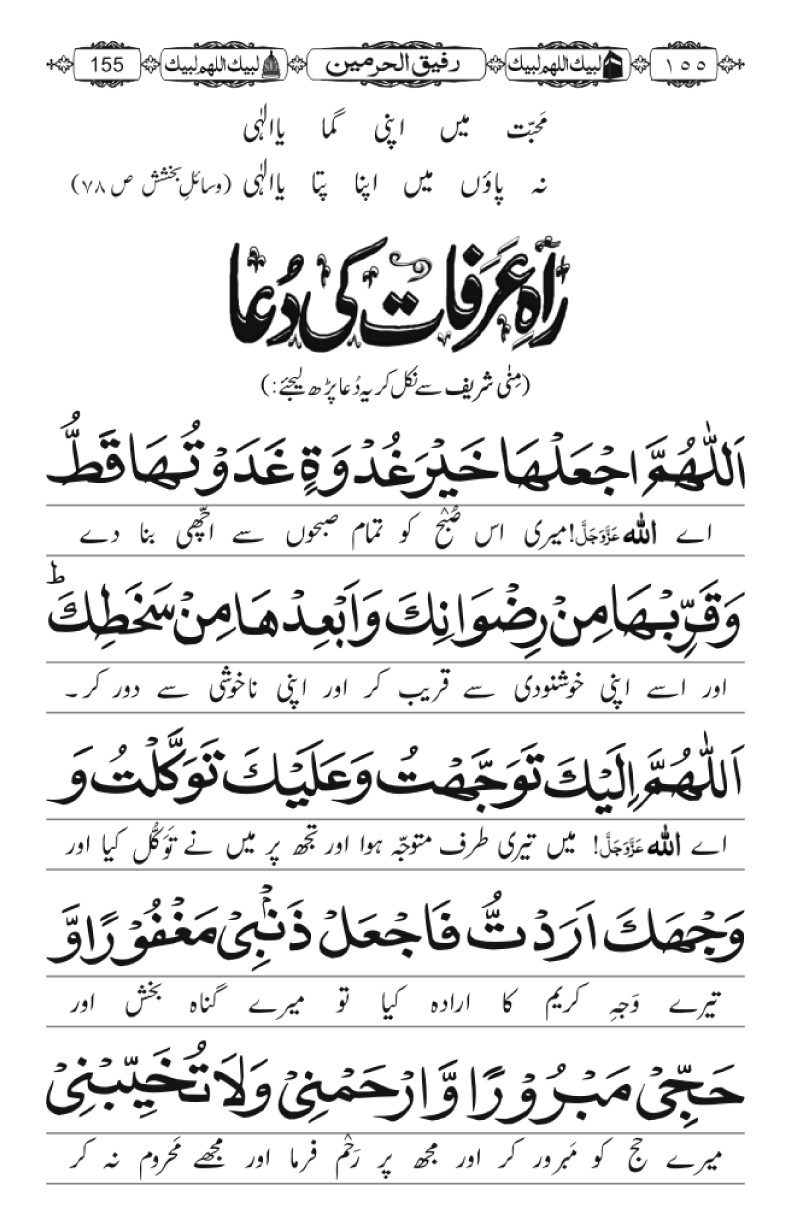 ١٥٥ لبيك اللهم لبيك رفیق الحرمین لبيك اللهم لبيك 155
مَحَبّت میں اپنی گما یاالٰہی
نہ پاؤں میں اپنا پتا یاالٰہی (وسائلِ بخشش ص ۷۸)
راہِ عَرَفات کی دُعا
(مِنٰی شریف سے نکل کر یہ دُعا پڑھ لیجئے:)
اَللّٰهُمَّ اجْعَلْهَا خَيْرَ غُدْوَةٍ غَدَوْتُهَا قَطُّ
اے اللہ عَزَّوَجَلَّ! میری اس صُبْح کو تمام صبحوں سے اچّھی بنا دے
وَقَرِّبْهَا مِنْ رِضْوَانِكَ وَاَبْعِدْهَا مِنْ سَخَطِكَ ؕ
اور اسے اپنی خوشنودی سے قریب کر اور اپنی ناخوشی سے دور کر۔
اَللّٰهُمَّ اِلَيْكَ تَوَجَّهْتُ وَعَلَيْكَ تَوَكَّلْتُ وَ
اے اللہ عَزَّوَجَلَّ! میں تیری طرف متوجّہ ہوا اور تجھ پر میں نے تَوَکُّل کیا اور
وَجْهَكَ اَرَدْتُّ فَاجْعَلْ ذَنْۢبِیْ مَغْفُوْرًا وَّ
تیرے وَجہِ کریم کا ارادہ کیا تو میرے گناہ بخش اور
حَجِّیْ مَبْرُوْرًا وَّارْحَمْنِیْ وَلَا تُخَيِّبْنِیْ
میرے حج کو مَبرور کر اور مجھ پر رَحْم فرما اور مجھے مَحروم نہ کر